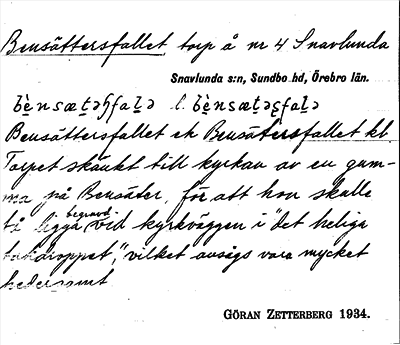 Bensättersfallet torp å nr 4 Snavlunda
Snavlunda s:n, Sundbo hd, Örebro län.
Bensättersfallet ek Bensättersfallet kl.
Torpet skänkt till kyrkan av en gum-
ma på Bensäter, för att hon skulle
få ligga begravd vid kyrkväggen i "det heliga
takdroppet", vilket ansågs vara mycket
hedersamt
GÖRAN ZETTERBERG 1934.